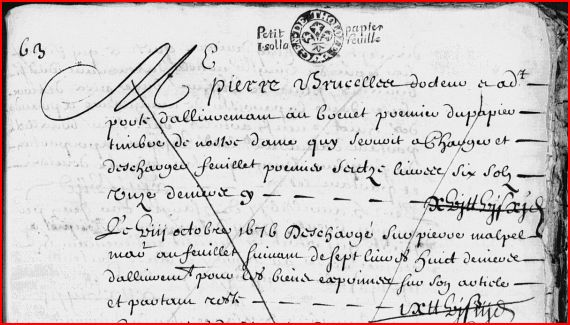 63
Petit papier
1 sol la feuille
Me pierre Brucelles docteur et adt
porte dallivrement au premier du papier
timbre de nostre dame quy servoit a Charger et
descharger feuillet premier seidze livres six solz
unze deniers
Le viii octobre 1676 Deschargé sur pierre malpel
au feuillet suivant de sept livres huict deniers
dallivremt pour les biens exprimes sur son article
et partant reste